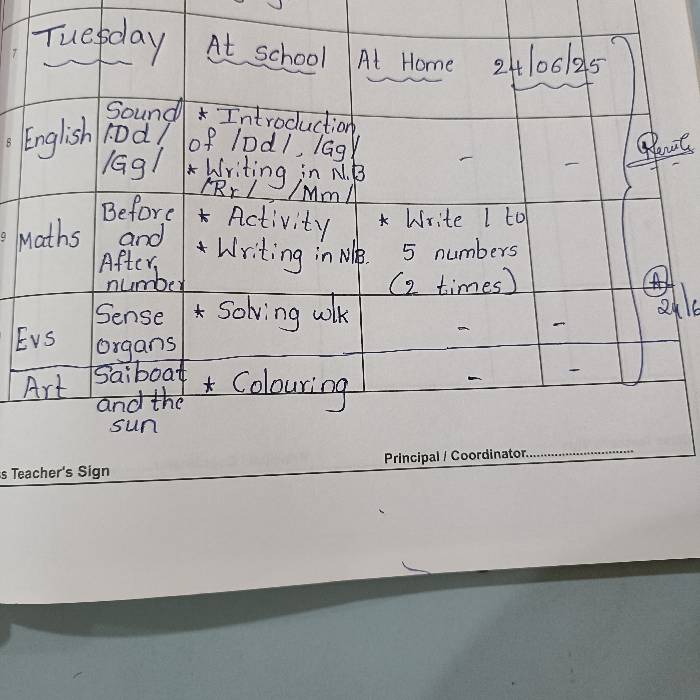 7 Tuesday At school At Home 24/06/25
8 English Sound /Dd/ /Gg/ * Introduction of /Dd/, /Gg/ * Writing in N.B /Rr/ /Mm/ - -
9 Maths Before and After number * Activity * Writing in N/B. * Write 1 to 5 numbers (2 times)
Evs Sense organs * Solving w/k - -
Art Saiboat and the sun * Colouring - -
A
24/6
s Teacher's Sign Principal / Coordinator..............................